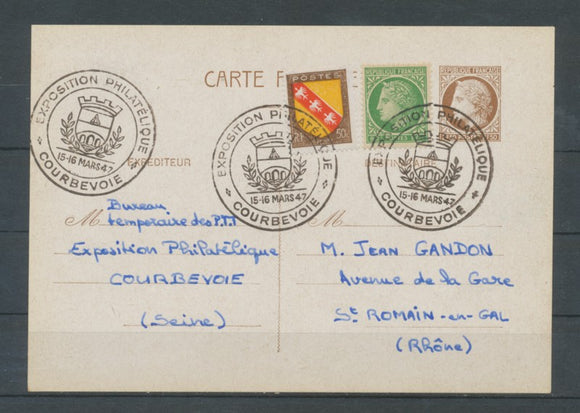 CARTE
POSTES
RF 50c
REPUBLIQUE FRANÇAISE
REPUBLIQUE FRANÇAISE
EXPOSITION PHILATÉLIQUE
15-16 MARS 47
COURBEVOIE
EXPOSITION PHILATÉLIQUE
15-16 MARS 47
COURBEVOIE
EXPOSITION PHILATÉLIQUE
15-16 MARS 47
COURBEVOIE
EXPÉDITEUR
DESTINATAIRE
Bureau
M temporaire des P.T.T
Exposition Philatélique
COURBEVOIE
(Seine)
M
M. JEAN GANDON
Avenue de la Gare
St ROMAIN-en-GAL
(Rhône)